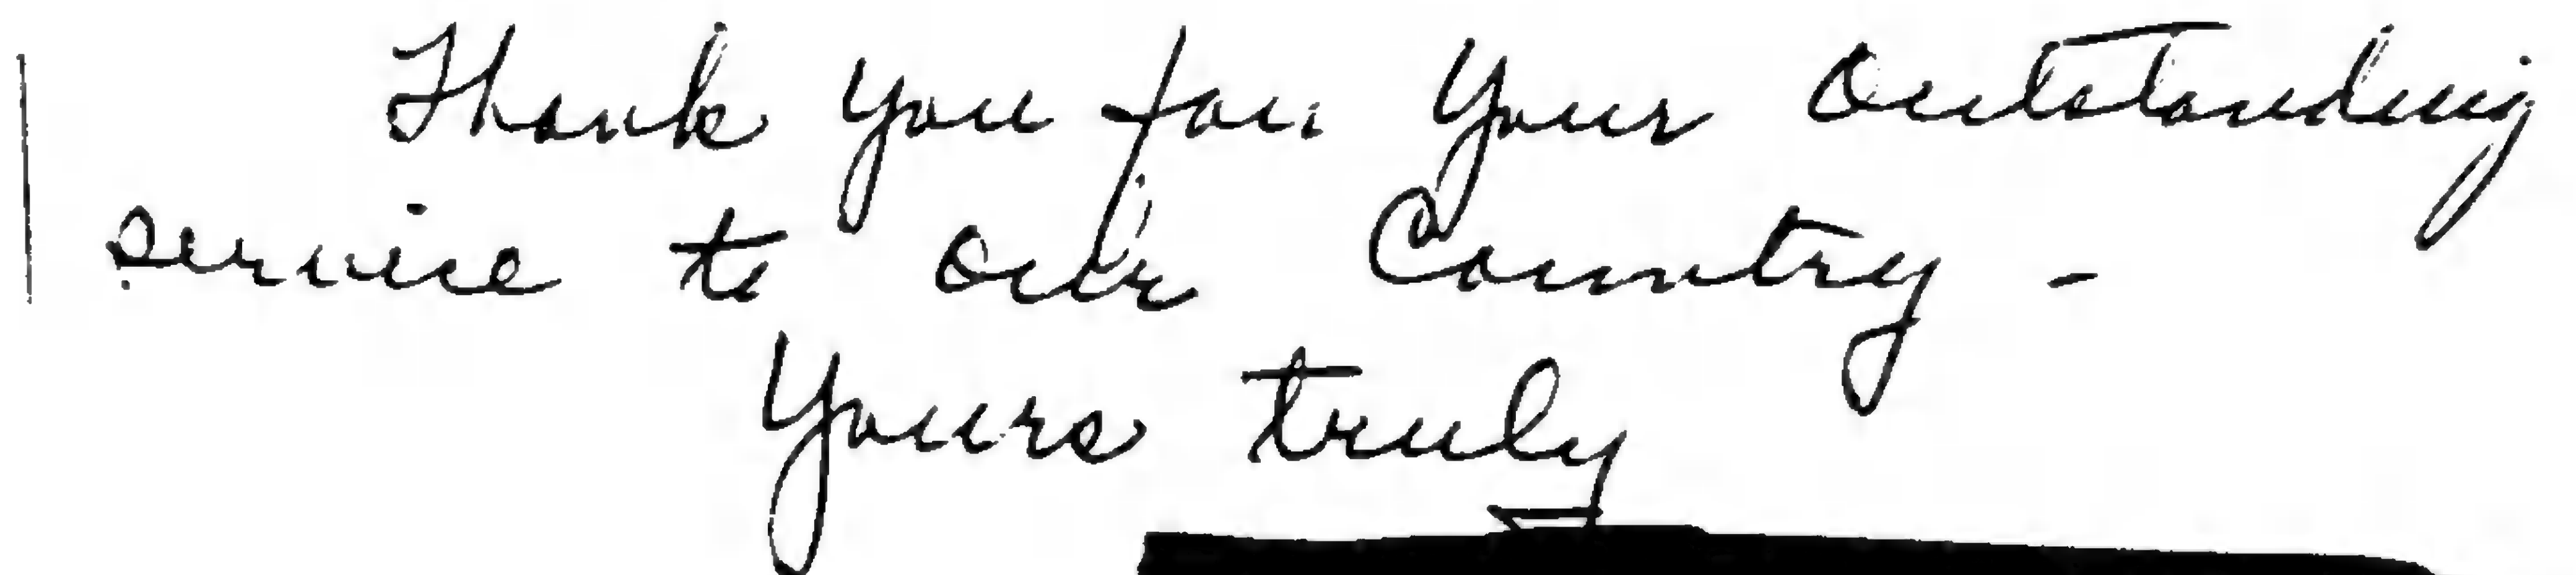 Thank you for Your Outstanding
service to our Country -
Yours truly